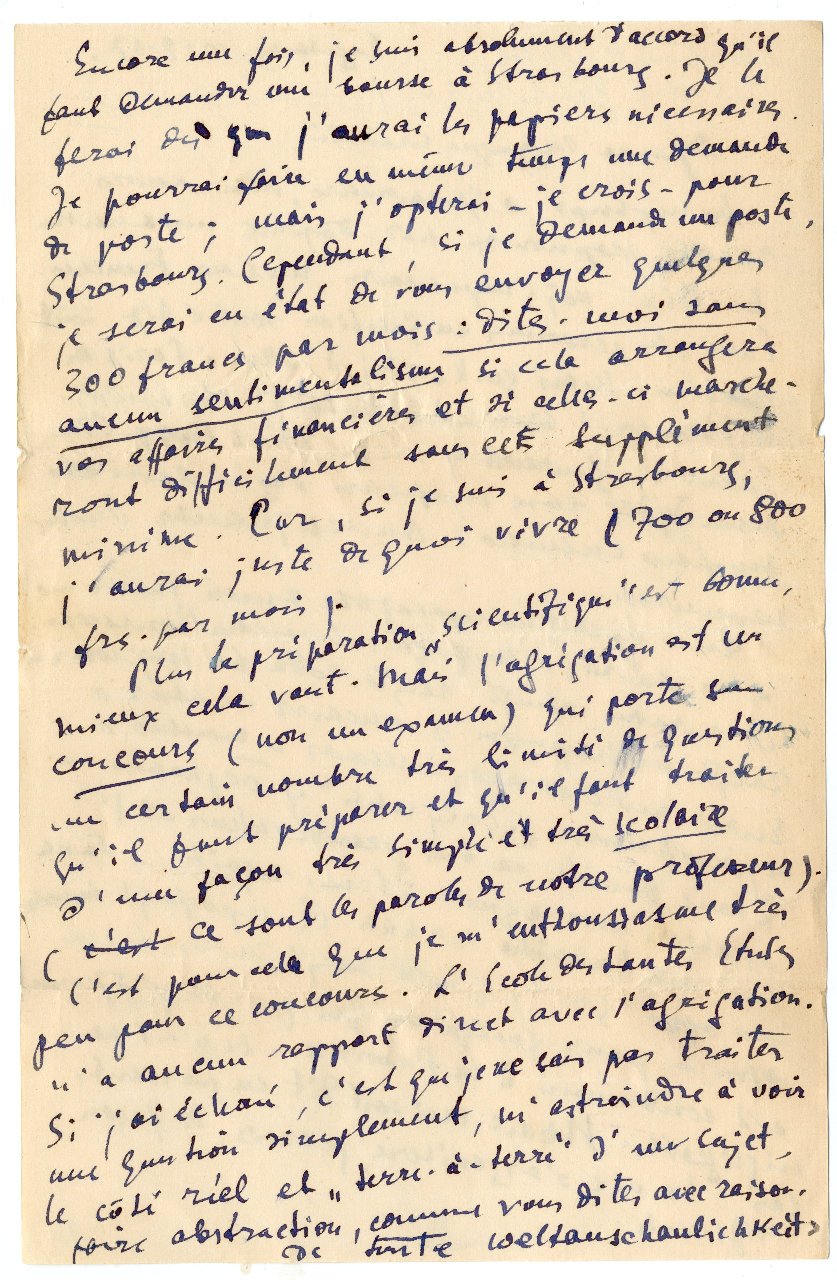 Encore une fois, je suis absolument d'accord qu'il
faut demander une bourse à Strasbourg. Je le
ferai dès que j'aurai les papiers nécessaires.
Je pourrai faire en même temps une demande
de poste ; mais j'opterai - je crois - pour
Strasbourg. Cependant, si je demande un poste,
je serai en état de vous envoyer quelques
300 francs par mois : dites-moi sans
aucun sentimentalisme si cela arrangera
vos affaires financières et si celles-ci marche-
ront difficilement sans cet supplément
minime. Car, si je suis à Strasbourg,
j'aurai juste de quoi vivre (700 ou 800
frs. par mois).
Plus la préparation scientifiqu'est bonne,
mieux cela vaut. Mais l'agrégation est un
concours (non un examen) qui porte sur
un certain nombre très limité de questions
qu'il faut préparer et qu'il faut traiter
d'une façon très simple et très scolaire
(c'est ce sont les paroles de notre professeur).
C'est pour cela que je m'enthousiasme très
peu pour ce concours. L'Ecole des Hautes Etudes
n'a aucun rapport direct avec l'agrégation.
Si j'ai échoué, c'est que je ne sais pas traiter
une question simplement, m'astreindre à voir
le côté réel et „terre-à-terre" d'un sujet,
faire abstraction, comme vous dites avec raison,
de toute weltanschaulichkeit